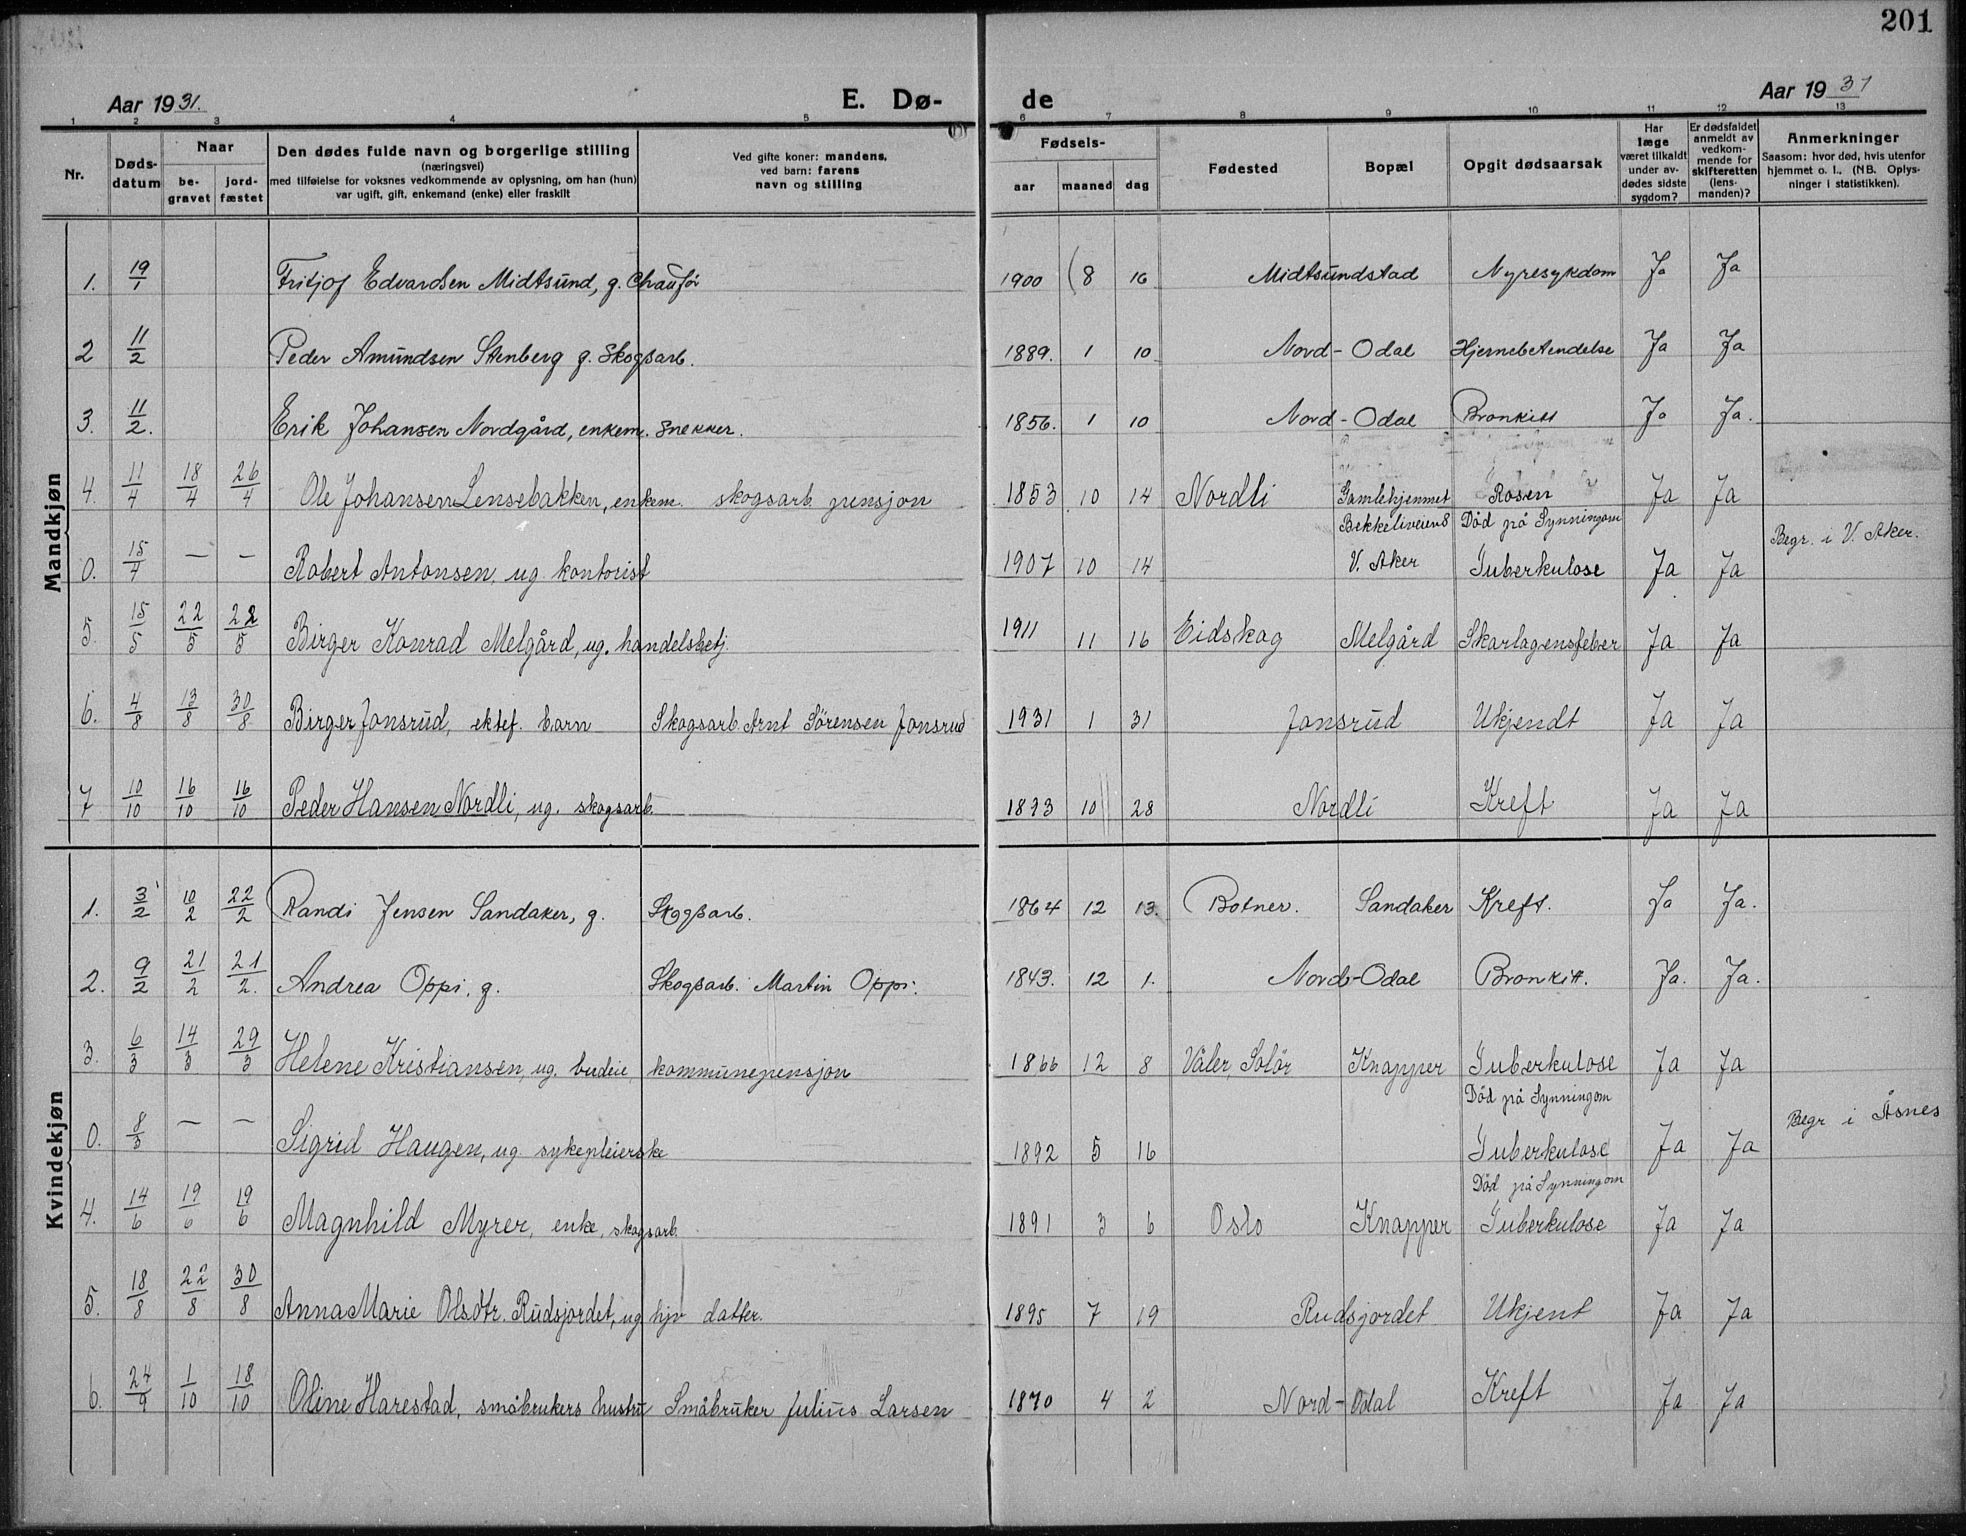 201
Aar 1931. E. Dø- de Aar 1931
1 2 3 4 5 6 7 8 9 10 11 12 13
Nr. Døds-datum Naar be-gravet jord-fæstet Den dødes fulde navn og borgerlige stilling (næringsvei) med tilføielse for voksnes vedkommende av oplysning, om han (hun) var ugift, gift, enkemand (enke) eller fraskilt Ved gifte koner: mandens, ved barn: farens navn og stilling Fødsels- aar maaned dag Fødested Bopæl Opgit dødsaarsak Har læge været tilkaldt under av-dødes sidste sygdom? Er dødsfaldet anmeldt av vedkom-mende for skifteretten (lens-manden)? Anmerkninger Saasom: hvor død, hvis utenfor hjemmet o. l., (NB. Oplys-ninger i statistikken).
Mandkjøn
1. 19/1 Fritjof Edvardsen Midtsund, g. Chaufør 1900 8 16 Midtsundstad Nyresykdom Ja Ja
2 11/2 Peder Amundsen Stenberg g. Skogsarb. 1889. 1 10 Nord-Odal Hjernebetendelse Ja Ja
3. 11/2. Erik Johansen Nordgård, enkem. Snekker. 1856. 1 10 Nord-Odal Bronkitt Ja Ja.
4. 11/4 18/4 26/4 Ole Johansen Lensebakken, enkem. skogsarb. pensjon 1853 10 14 Nordli Gamlehjemmet Rosen Ja Ja
0. 15/4 — — Robert Antonsen, ug. kontorist 1907 10 14 Bekkeliveien 8 V. Aker Død på Synningom Tuberkulose Ja Ja Begr. i V. Aker.
5. 15/5 22/5 22/5 Birger Konrad Melgård, ug. handelsbetj. 1911 11 16 Eidskog Melgård Skarlagensfeber Ja Ja
6. 4/8 13/8 30/8 Birger Jonsrud, ektef. barn Skogsarb. Arnt Sørensen Jonsrud 1931 1 31 Jonsrud Ukjendt Ja Ja
7 10/10 16/10 16/10 Peder Hansen Nordli, ug. skogsarb. 1893 10 28 Nordli Kreft Ja Ja
Kvindekjøn
1. 3/2 10/2 22/2 Randi Jensen Sandaker, g. Skogsarb. 1864 12 13. Botner. Sandaker Kreft. Ja Ja.
2. 9/2 21/2 21/2. Andrea Oppi, g. Skogsarb. Martin Oppi. 1843. 12 1. Nord-Odal Bronkitt. Ja. Ja.
3. 6/3 14/3 29/3 Helene Kristiansen, ug. budeie, kommunepensjon 1866 12 8 Våler, Solør Knapper Tuberkulose Ja Ja
0. 8/5 — — Sigrid Haugen, ug. sykepleierske 1892 5 16 Død på Synningom Tuberkulose Ja Ja Begr i Åsnes
4. 14/6 19/6 19/6 Magnhild Myrer, enke, skogsarb. 1891 3 6 Oslo Knapper Død på Synningom Tuberkulose Ja Ja
5. 18/8 22/8 30/8 Anna Marie Olsdtr. Rudsjordet, ug hjv datter. 1895 7 19 Rudsjordet Ukjent Ja Ja
6. 24/9 1/10 18/10 Oline Harestad, småbrukers hustru Småbruker Julius Larsen 1870 4 2 Nord-Odal Kreft Ja Ja